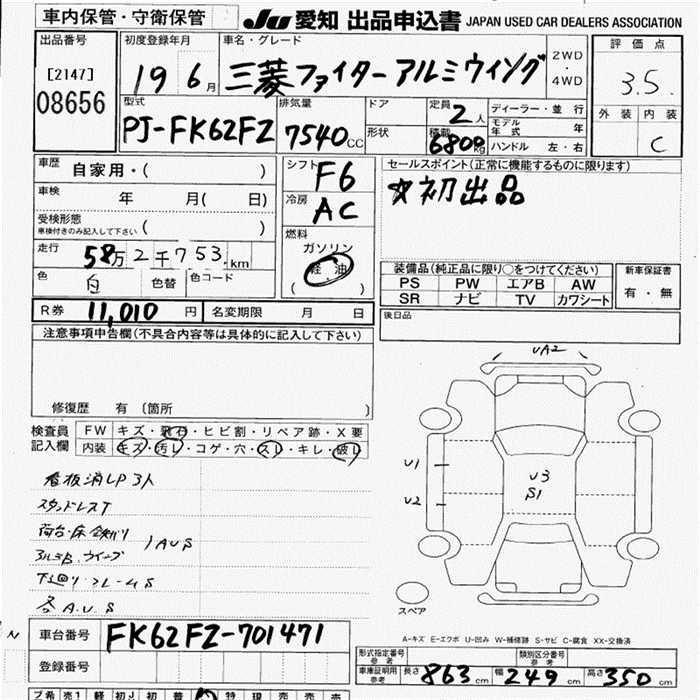 車内保管・守衛保管
JU 愛知 出品申込書 JAPAN USED CAR DEALERS ASSOCIATION
出品番号
[2147]
08656
初度登録年月
19 6月
車名・グレード
三菱ファイターアルミウィング
2WD
・
4WD
評価点
3.5
外装 内装
C
型式
PJ-FK62FZ
排気量
7540cc
ドア
形状
定員 2人
積載 6800kg
ディーラー・並行
モデル年式 年
ハンドル 左・右
車歴 自家用・( )
車検 年 月( 日)
受検形態
車検付きのみ記入して下さい ( )
走行 58万2千753.km
色 白 色替 色コード
シフト F6
冷房 AC
燃料
ガソリン
(軽油)
セールスポイント(正常に機能するものに限ります)
☆初出品
装備品(純正品に限り○をつけてください)
PS PW エアB AW
SR ナビ TV カワシート
新車保証書
有・無
R券 11,010円 名変期限 月 日
後日品
注意事項申告欄(不具合内容等は具体的に記入して下さい)
修復歴 有 〔箇所 〕
検査員記入欄
FW キズ・飛石・ヒビ割・リペア跡・X要
内装 キズ・汚レ・コゲ・穴・スレ・キレ・破レ
看板消しP3人
スタッドレスT
荷台・床鉄バリ
アルミB.ウイープ 1AUS
下廻り・フレームS
各A.U.S
UA2
U1
U2
U3
S1
スペア
A-キズ E-エクボ U-凹み W-補修跡 S-サビ C-腐食 XX-交換済
N
車台番号 FK62FZ-701471
登録番号
形式指定番号 参考
類別区分番号 参考
車庫証明用 参考 長さ 863cm 幅 249cm 高さ 350cm